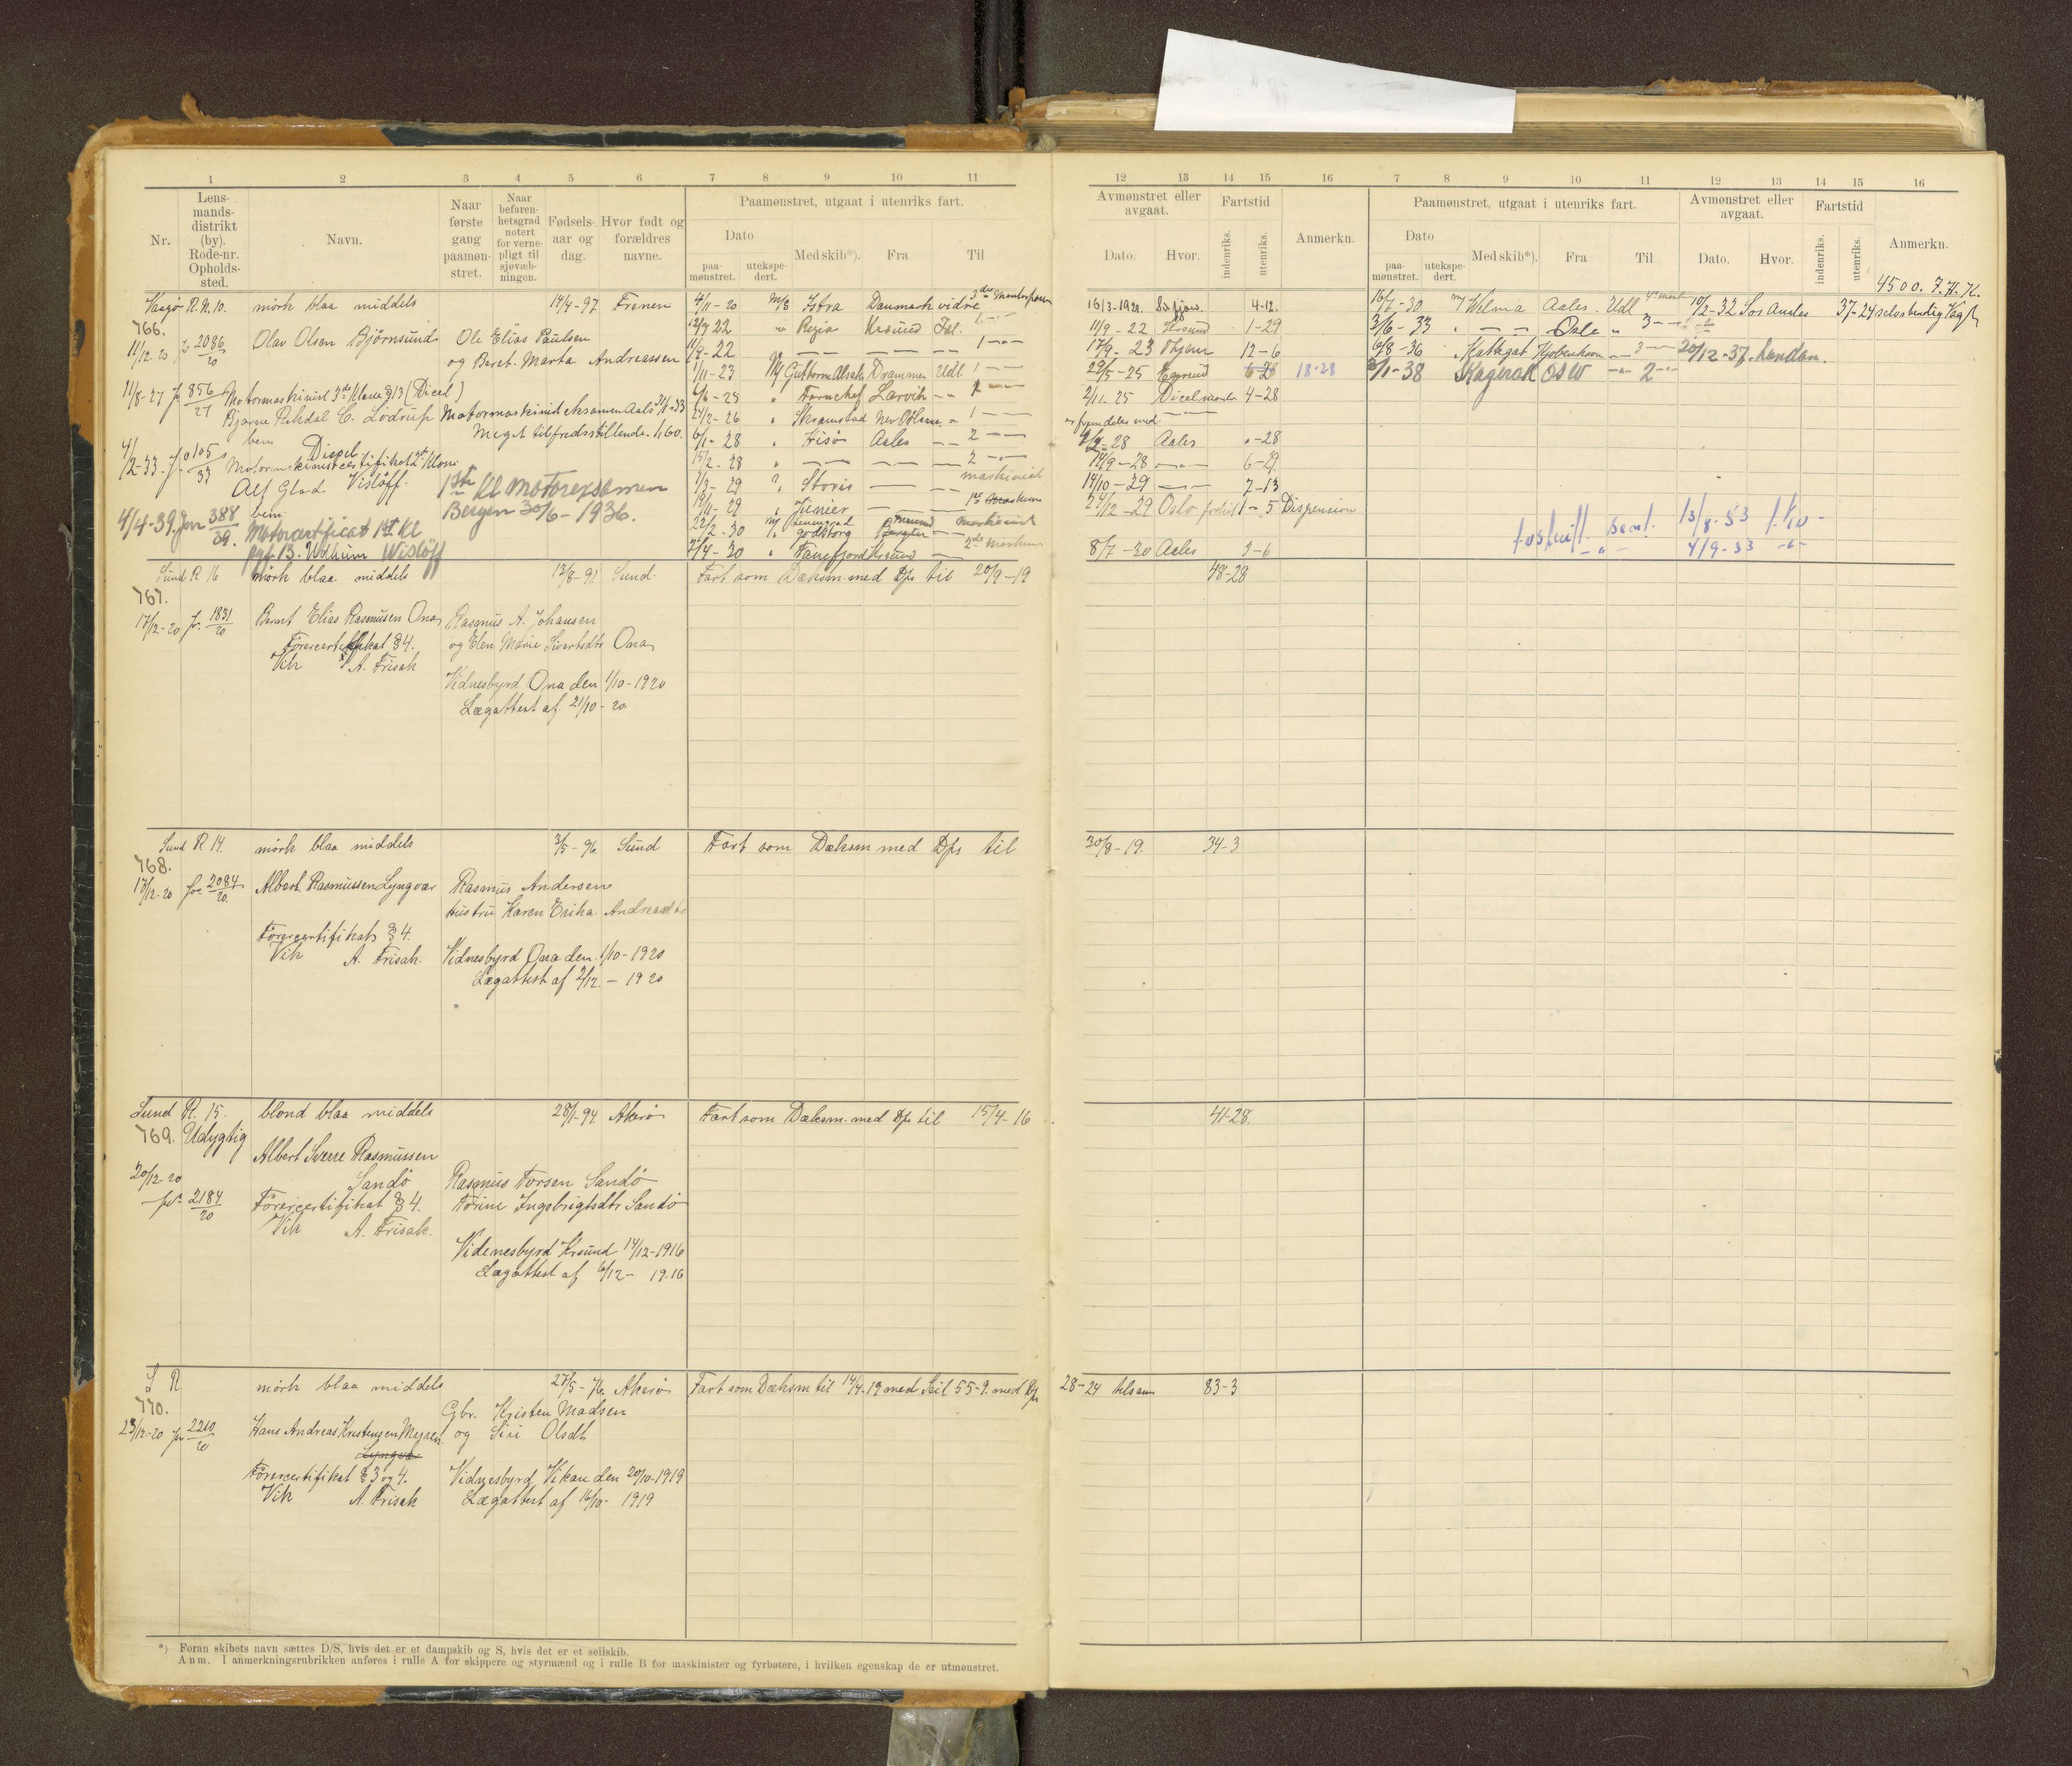 1 2 3 4 5 6 7 8 9 10 11
Nr.
Lens-
mands-
distrikt
(by).
Rode-nr.
Opholds-
sted.
Navn.
Naar
første
gang
paamøn-
stret.
Naar
befaren-
hetsgrad
notert
for verne-
pligt til
sjøvæb-
ningen.
Fødsels-
aar og
dag.
Hvor født og
forældres
navne.
Paamønstret, utgaat i utenriks fart.
Dato
paa-
mønstret.
utekspe-
dert.
Med skib*).
Fra
Til
Vaagø R. N. 10. mörk blaa middels 14/4-97 Frænen
766.
11/12-20 jr 2086/20 Olav Olsen Bjørnsund Ole Elias Paulsen
og Beret Marta Andreassen
11/8-27 jr 856/27 Motormaskinist 3de Klasse §13 (Diesel)
Bjarne Rekdal C. Lödrup Motormaskinist eksamen Aals
bem Meget tilfredsstillende. 1,60.
4/2-33. jr 105/33 Diesel
Motormaskinistcertifikat 2den Klasse
Alf Glad Vislöff. 1ste Kl motorexamen
4/4-39. Jnr 388/39. bem Bergen 30/6-1936.
Motorcertificat 1st Kl
pgf 13. Wislöff
4/11-20 M/S Istra Danmark vidre 3die Motorpasser
12/7 22 Resja Krsund Isl. 1 - -
11/9-22 - - - 1 - -
1/11-23 M/ Guttorm Alsaker Drammen Udl. 1 - -
6/6-25 " Larvik - -
24/2-26 " Skramstad New Orleans " 1 - -
6/1-28 " Hisö Aales - - 2 - -
15/2-28 " - - - 2 - -
1/3-29 " Storis - - maskinist
19/11-29 " Junior - -
22/2-30
2/4-30 " Tanefjord Krsund - 2de Maskin
Sund R 16 mörk blaa middels 13/8-92 Sund. Fart som Dæksm. med Dps til 20/9-19
767.
17/12-20 jr. 1831/20 Bernt Elias Rasmussen Ona Rasmus A. Johansen
Förercertifikat §4. og Elen Marie Sivertsdtr Ona
Vik A. Frisak
Vidnesbyrd Ona den 1/10-1920
Lægattest af 21/10-20
Sund R 14. mörk blaa middels 3/5-96 Sund Fart som Dæksm med Dps til
768.
17/12-20 jnr 2084/20. Albert Rasmussen Lyngvær Rasmus Andersen
hustru Karen Erika Andreasdtr
Förercertifikat §4.
Vik A. Frisak. Vidnesbyrd Ona den 1/10-1920
Lægattest af 2/12-1920
Sund R. 15. blond blaa middels 28/1-94. Akerö Fart som Dæksm. med Dps til 15/4-16
769. Udygtig
Albert Sverre Rasmussen
20/12-20 Sandö Rasmus Torsen Sandö
jnr 2184/20 Förercertifikat §4. Torine Ingebrigtsdtr Sandö
Vik A. Frisak.
Videnesbyrd Krsund 14/12-1916
Lægattest af 6/12-1916
S R mörk blaa middels 27/5-76. Akerö Fart som Dæksm til 14/4-19 med Seil 55-9. med Dps
770. Gbr. Kristen Madsen
23/12-20 jnr 2210/20 Hans Andreas Kristensen Myren og Siri Olsdt
Lyngvær
Förercertifikat §3 og 4. Vidnesbyrd Vikan den 20/10-1919
Vik A. Frisak Lægattest af 16/10-1919
*) Foran skibets navn sættes D/S, hvis det er et dampskib og S, hvis det er et seilskib.
Anm. I anmerkningsrubrikken anføres i rulle A for skippere og styrmænd og i rulle B for maskinister og fyrbøtere, i hvilken egenskap de er utmønstret.
12 13 14 15 16 7 8 9 10 11 12 13 14 15 16
Avmønstret eller
avgaat.
Dato.
Hvor.
Fartstid
indenriks.
utenriks.
Anmerkn.
Paamønstret, utgaat i utenriks fart.
Dato
paa-
mønstret.
utekspe-
dert.
Med skib*).
Fra
Til
Avmønstret eller
avgaat.
Dato.
Hvor.
Fartstid
indenriks.
utenriks.
Anmerkn.
4500. I. H. K.
16/3-1921 4-12.
11/9-22 Krsund 1-29
17/9-23 Thjem 12-6
29/5-25 Egersund 6-28 18-28
2/11-25 4-28
er fremdeles med
2/2-28 Aales "-28
14/9-28 - - 6-29.
14/10-29 - - 7-13
24/12-29 Oslo 1-5 Dispension
8/7-30 Aales 3-6
16/7-30 M/ Wilma Aales. Udl 10/2-32 Los Angeles 37-24 selvstendig Vagt
3/6-33 " - - Oslo " 3 - -
6/8-36 " Kattegat Kjøbenhavn - 3 - 20/12-37. London.
8/1-38 Skagerak Oslo - " - 2 - " -
13/8-53
4/9-53 - " -
48-28
30/8-19. 34-3
41-28.
28-24 tilsam 83-3